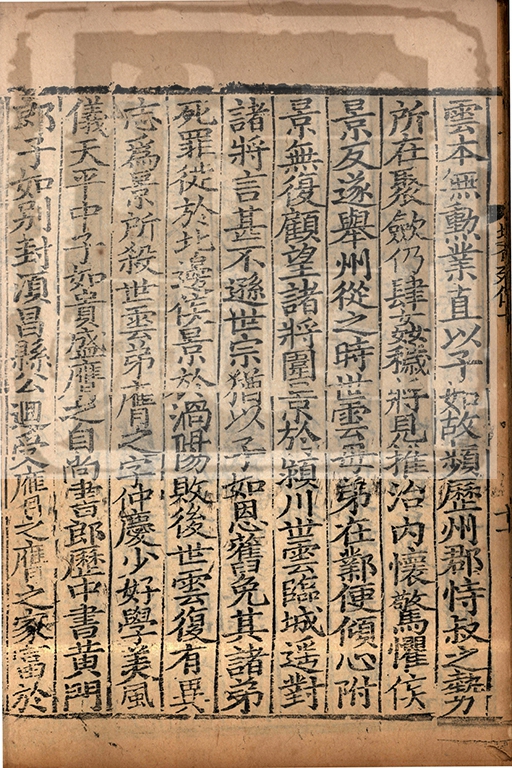 雲本無勲業直以子如故頻歷州郡恃叔之勢
所在聚斂仍肆姦穢將見推治內懷驚懼侯
景反遂舉州從之時世雲母弟在鄴便傾心附
景無復顧望諸將圍景於潁川世雲臨城遥對
諸將言甚不遜世宗猶以子如恩舊免其諸弟
死罪徙於北邊侯景於渦陽敗後世雲復有異
志爲景所殺世雲弟膺之字仲慶少好學美風
儀天平中子如貴盛膺之自尚書郎歷中書黃門
郎子如別封湏昌縣公迴受膺之膺之家富於